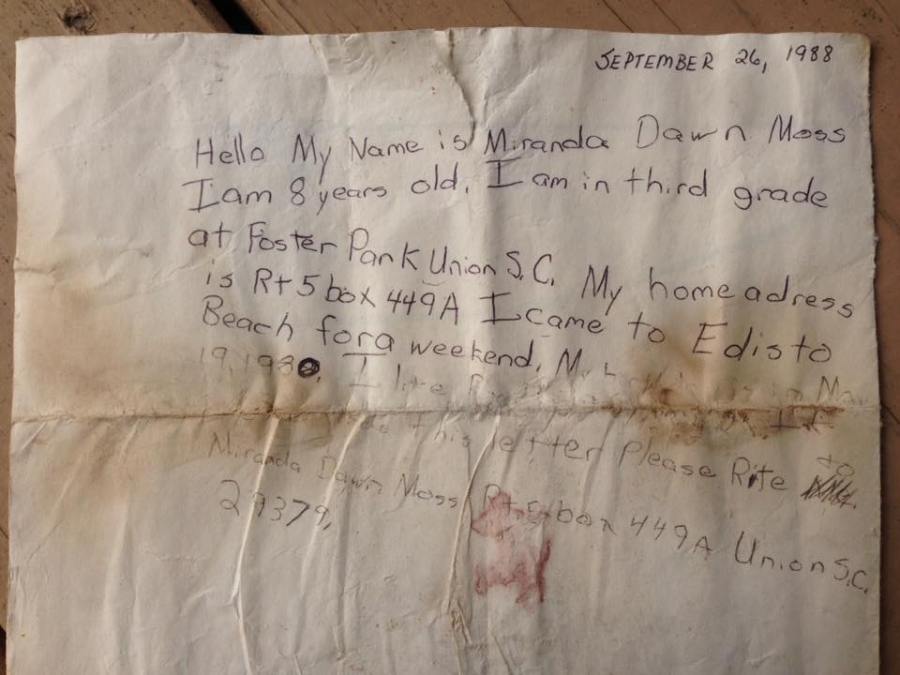 SEPTEMBER 26, 1988
Hello My Name is Miranda Dawn Moss
I am 8 years old. I am in third grade
at Foster Park Union S.C. My home adress
is Rt 5 box 449A I came to Edisto
Beach for a weekend. My is in May
19, 1980. I like
this letter Please Rite to
Miranda Dawn Moss Rt 5 box 449A Union S.C.
29379.